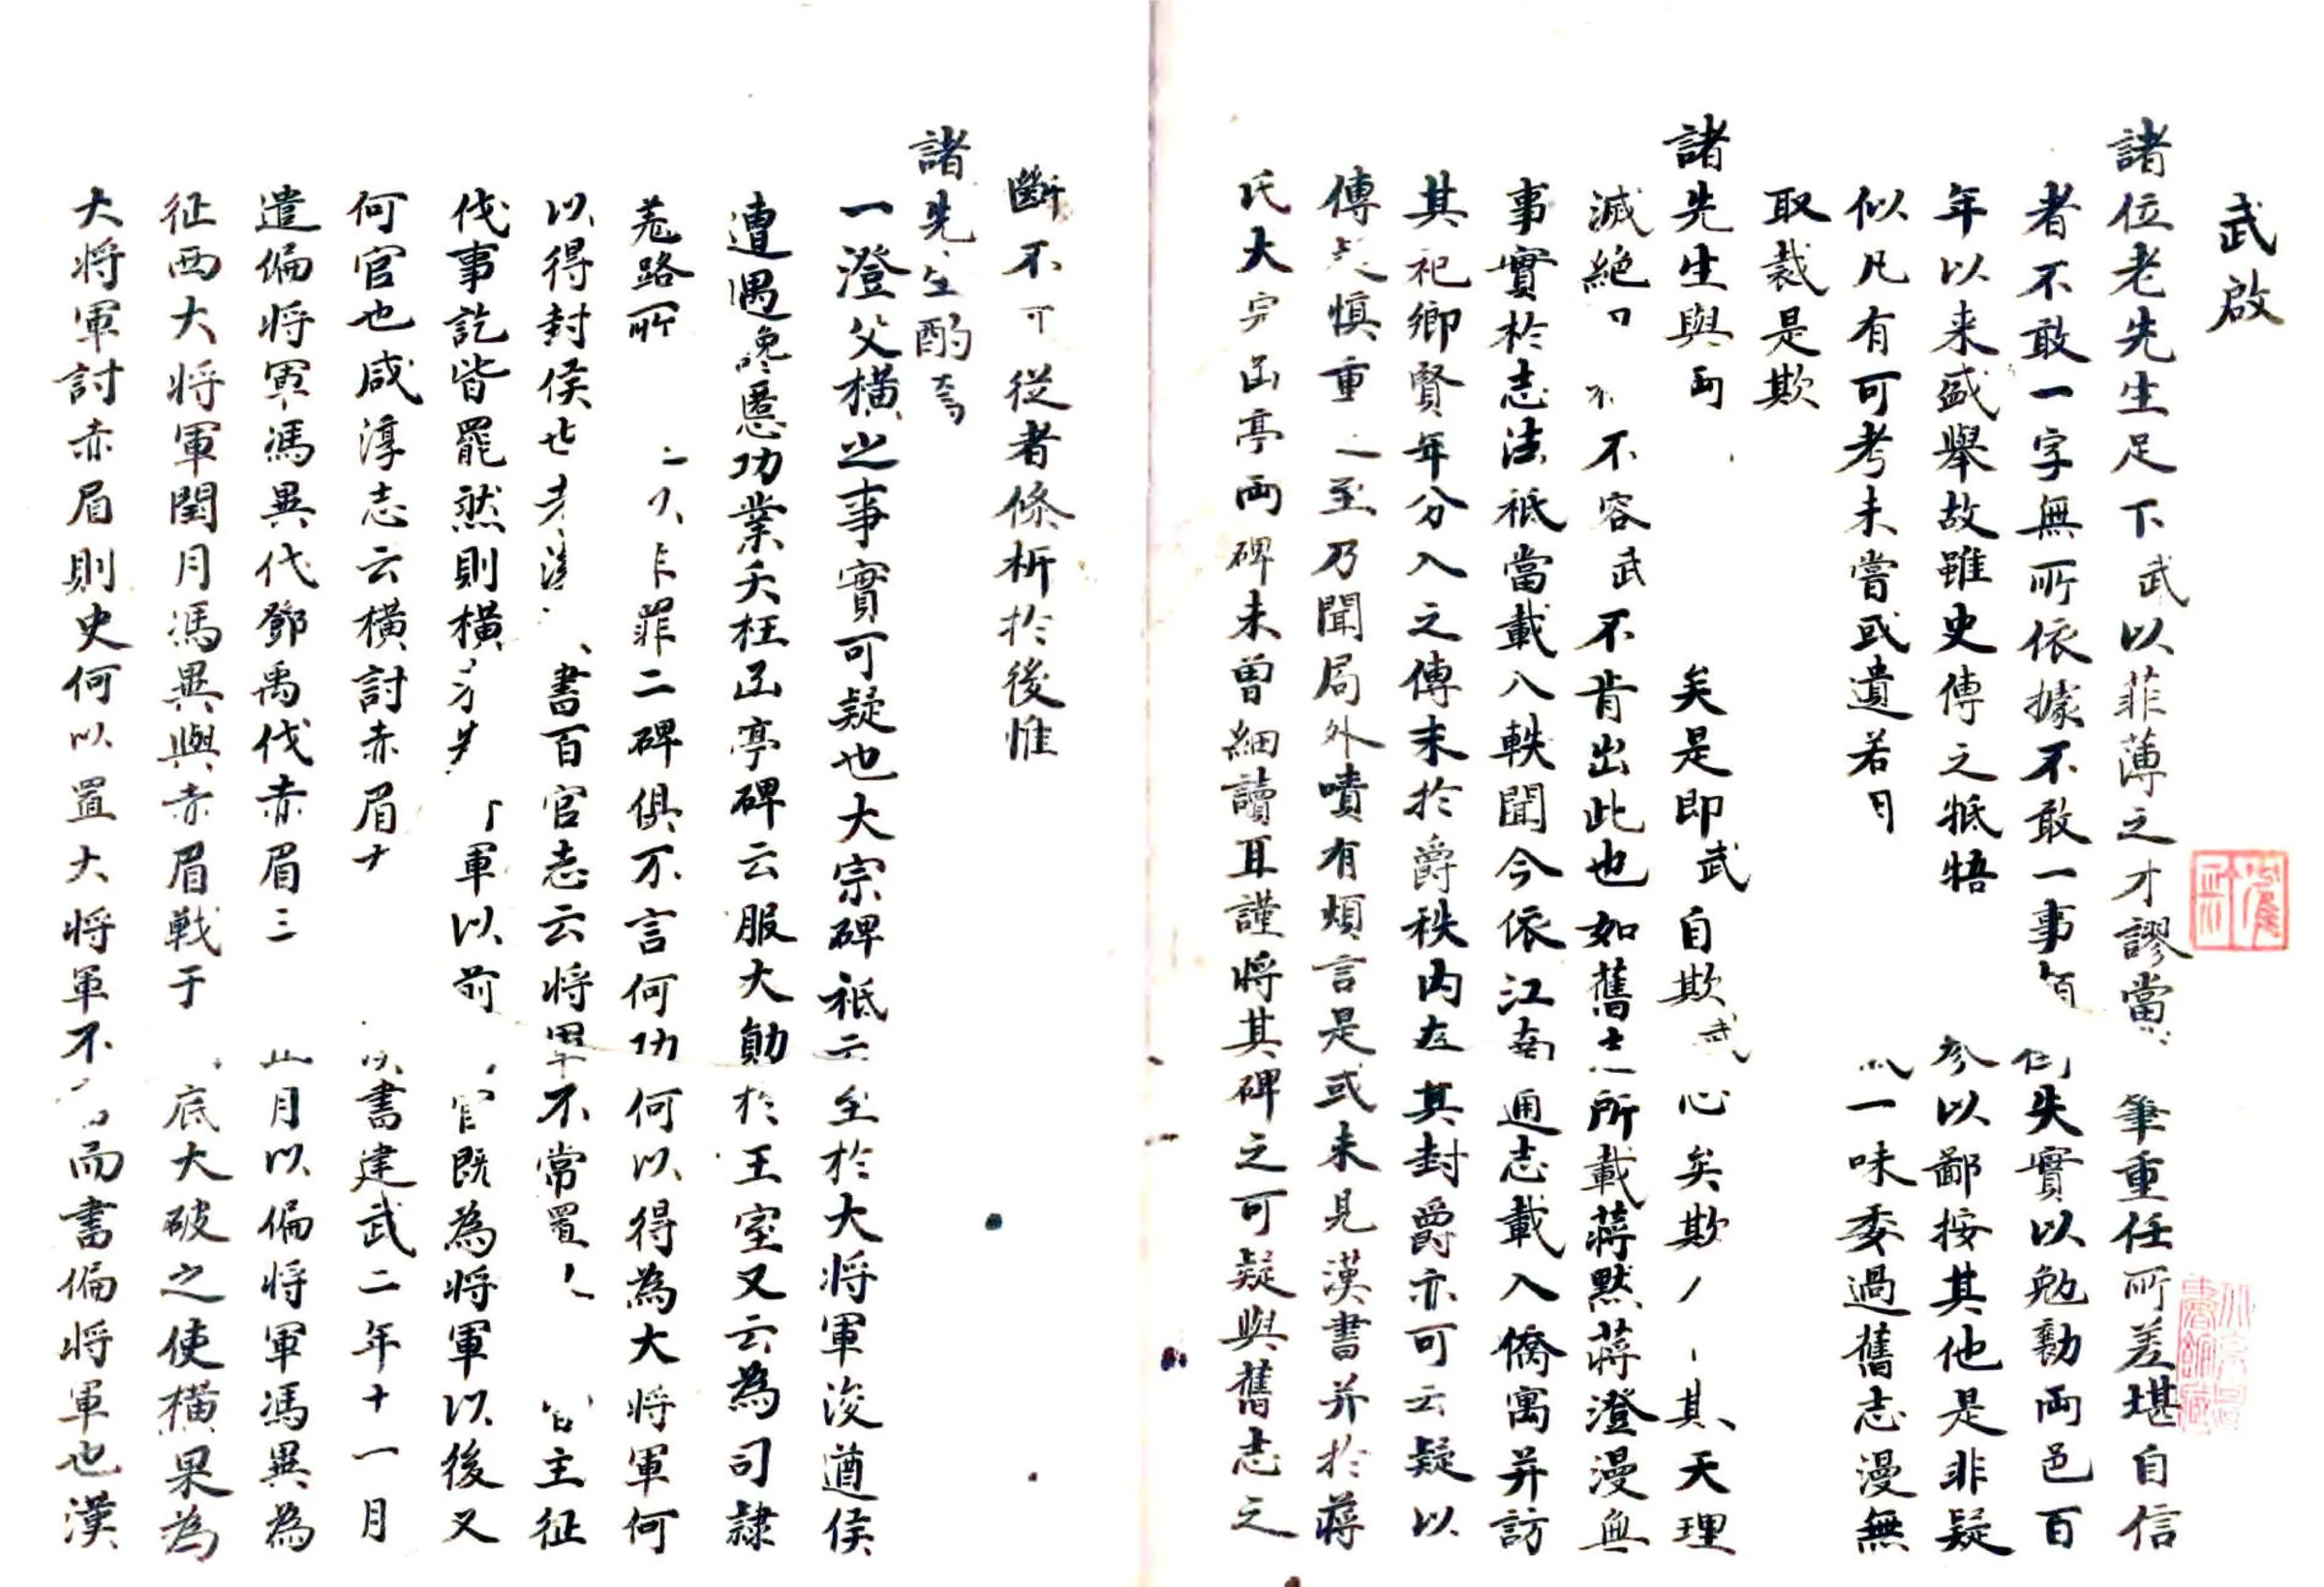 武啟
諸位老先生足下武以菲薄之才謬當筆重任所差堪自信
者不敢一字無所依據不敢一事失實以勉勷兩邑百
年以来盛舉故雖史傳之牴牾參以鄙按其他是非疑
似凡有可考未嘗或遺若一味委過舊志漫無
取裁是欺
諸先生與兩矣是即武自欺武心矣欺其天理
滅絕不容武不肯出此也如舊所載蔣默蔣澄漫無
事實於志法祇當載入軼聞今依江南通志載入僑寓并訪
其祀鄉賢年分入之傳末於爵秩内左其封爵亦可云疑以
傳慎重之至乃聞局外嘖有煩言是或未見漢書并於蔣
氏大宗凾亭兩碑未曾細讀耳謹將其碑之可疑與舊志之
斷不可從者條析於後惟
諸先生酌奪
一澄父橫之事實可疑也大宗碑祇云至於大將軍浚遒侯
遭遇讒慝功業夭枉凾亭碑云服大勛於王室又云為司隸
羗路所罪二碑俱不言何功何以得為大將軍何
以得封侯也書百官志云將軍不常置主征
伐事訖皆罷然則橫軍以前官既為將軍以後又
何官也咸淳志云橫討赤眉書建武二年十一月
遣偏將軍馮異代鄧禹伐赤眉三月以偏將軍馮異為
征西大將軍閏月馮異與赤眉戰于底大破之使橫果為
大將軍討赤眉則史何以置大將軍不而書偏將軍也漢